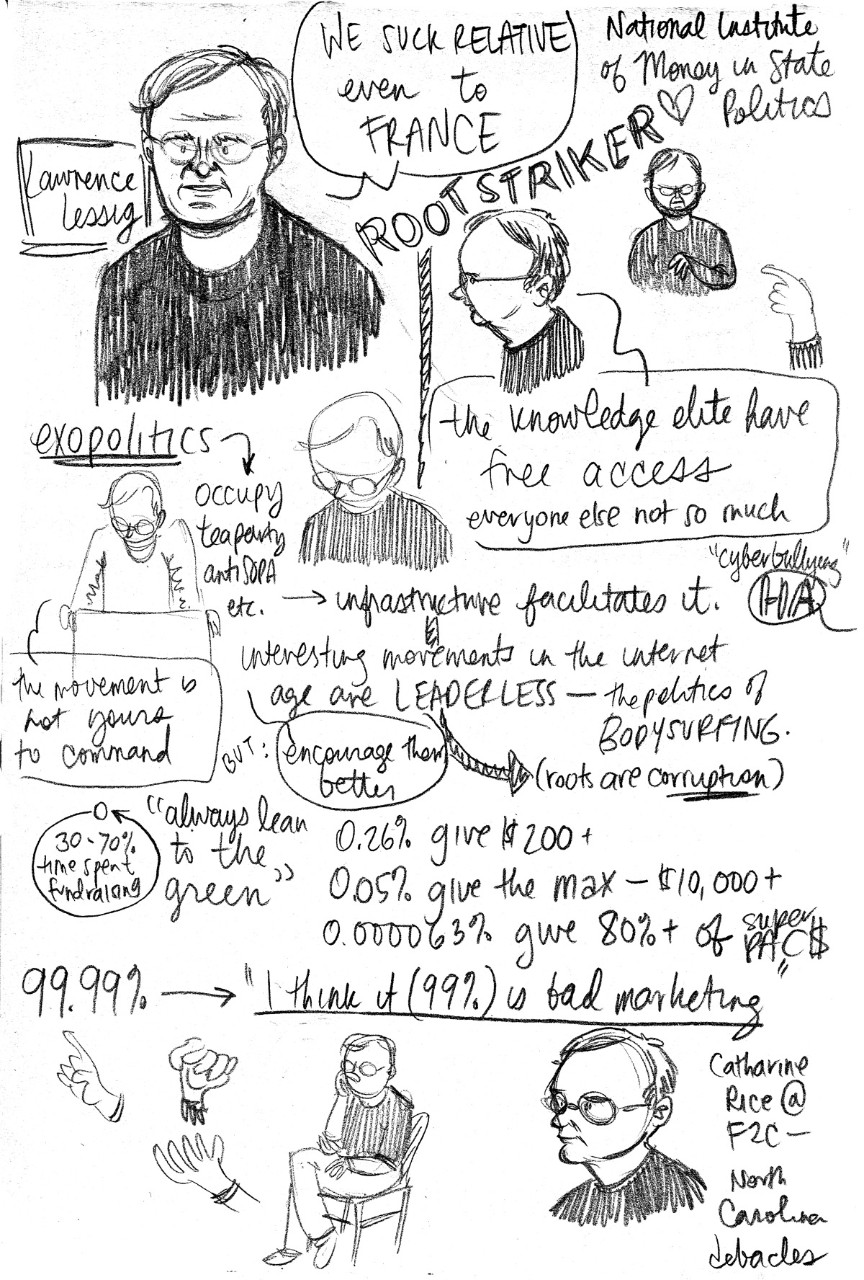 WE SUCK RELATIVE
even to
FRANCE
National Institute
of Money in State
Politics
Lawrence
Lessig
ROOTSTRIKER
the knowledge elite have
free access
everyone else not so much
exopolitics
occupy
teaparty
antiSOPA
etc.
infrastructure facilitates it.
"cyberbullying"
HA
interesting movements in the internet
age are LEADERLESS — the politics of
BODYSURFING.
the movement is
not yours
to command
BUT:
encourage them
better
(roots are corruption)
30-70%
time spent
fundraising
"always lean
to the
green"
0.26% give $200+
0.05% give the max — $10,000+
0.000063% give 80%+ of super
PAC$
99.99% → "I think it (99%) is bad marketing"
Catharine
Rice @
F2C —
North
Carolina
debacles